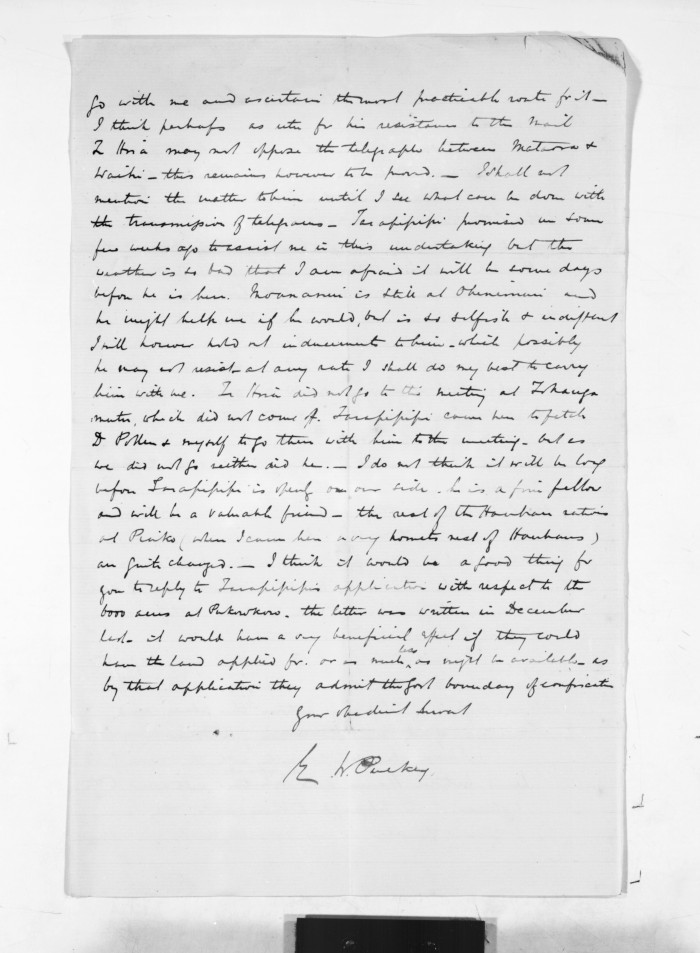 go with me and ascertain the most practicable route for it –
I think perhaps as for his resistance to the Mail
Te Hira may not oppose the telegraph between Mataora &
Waihi – this remains however to be proved. – I shall not
mention the matter to him until I see what can be done with
the transmission of telegrams – Tarapipipi promised me some
few weeks ago to assist me in this undertaking but the
weather is so bad that I am afraid it will be some days
before he is here. Moananui is still at Ohinemuri and
he might help me if he would, but is so selfish & indifferent
I will however hold out inducement to him – which possibly
he may not resist – at any rate I shall do my best to carry
him with me. Te Hira did not go to the meeting at
which did not come off. Tarapipipi came here to fetch
Dr Pollen & myself to go there with him to the meeting – but as
we did not go neither did he. – I do not think it will be long
before Tarapipipi is openly on our side – he is a fine fellow
and will be a valuable friend – the rest of the Hauhau natives
at Piako (when I came here a very hornets nest of Hauhaus)
are quite changed. – I think it would be a good thing for
you to reply to Tarapipipis application with respect to the
6000 acres at Pukorokoro. the letter was written in December
last – it would have a very beneficial effect if they could
have the land applied for. or as much as might be available – as
by that application they admit the Govt boundary of confiscation
Your obedient Servant
E W. Puckey